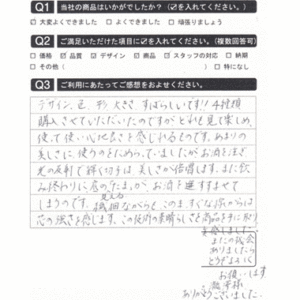 Q1 当社の商品はいかがでしたか?(☑を入れてください。)
☑大変よくできました □よくできました □頑張りましょう
Q2 ご満足いただけた項目に☑を入れてください。(複数回答可)
□価格 ☑品質 ☑デザイン ☑商品 ☑スタッフの対応 □納期
□その他( ) □特になし
Q3 ご利用にあたってご感想をお寄せください。
デザイン、色、形、大きさ すばらしいです!! 4種類
購入させていただいたのですがどれも見て楽しめ、
使って使い心地良さを感じれるものです。あまりの
美しさに、使うのをためらっていましたがお酒を注ぎ
光の反射で輝く切子は美しさが倍増します。また飲
み終わりに底のたまが、お酒を進すませて
しまうのです。繊細ながらも このますぐな線からは
芯の強さを感じます。この技術の素晴らしさを商品を手に取り
を感しました。
またの機会
ありましたら
どうぞよろしく
お使いします
ありがとうございました。